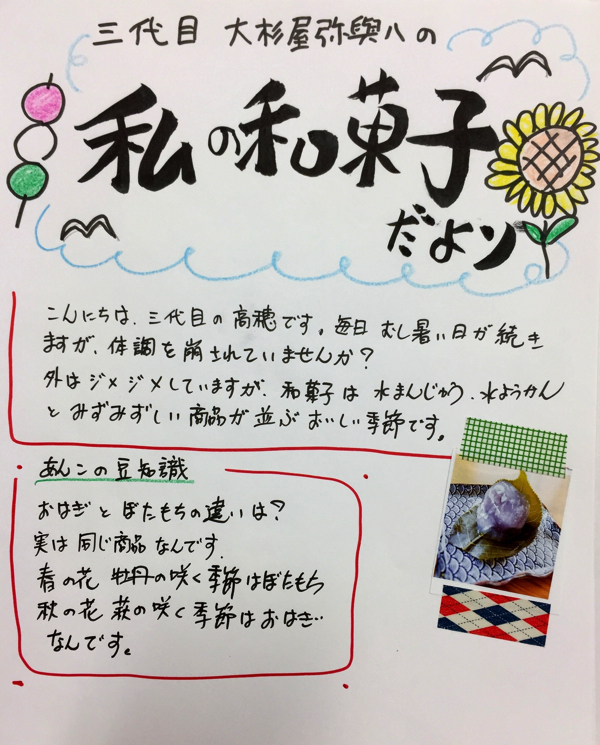 三代目 大杉屋弥與八の
私の和菓子
だよソ
こんにちは、三代目の高穂です。毎日 むし暑い日が続き
ますが、体調を崩されていませんか?
外はジメジメしていますが、和菓子は 水まんじゅう、水ようかん
と みずみずしい商品が並ぶ おいしい季節です。
あんこの豆知識
おはぎとぼたもちの違いは?
実は同じ商品なんです。
春の花 牡丹の咲く季節はぼたもち
秋の花 萩の咲く季節はおはぎ
なんです。